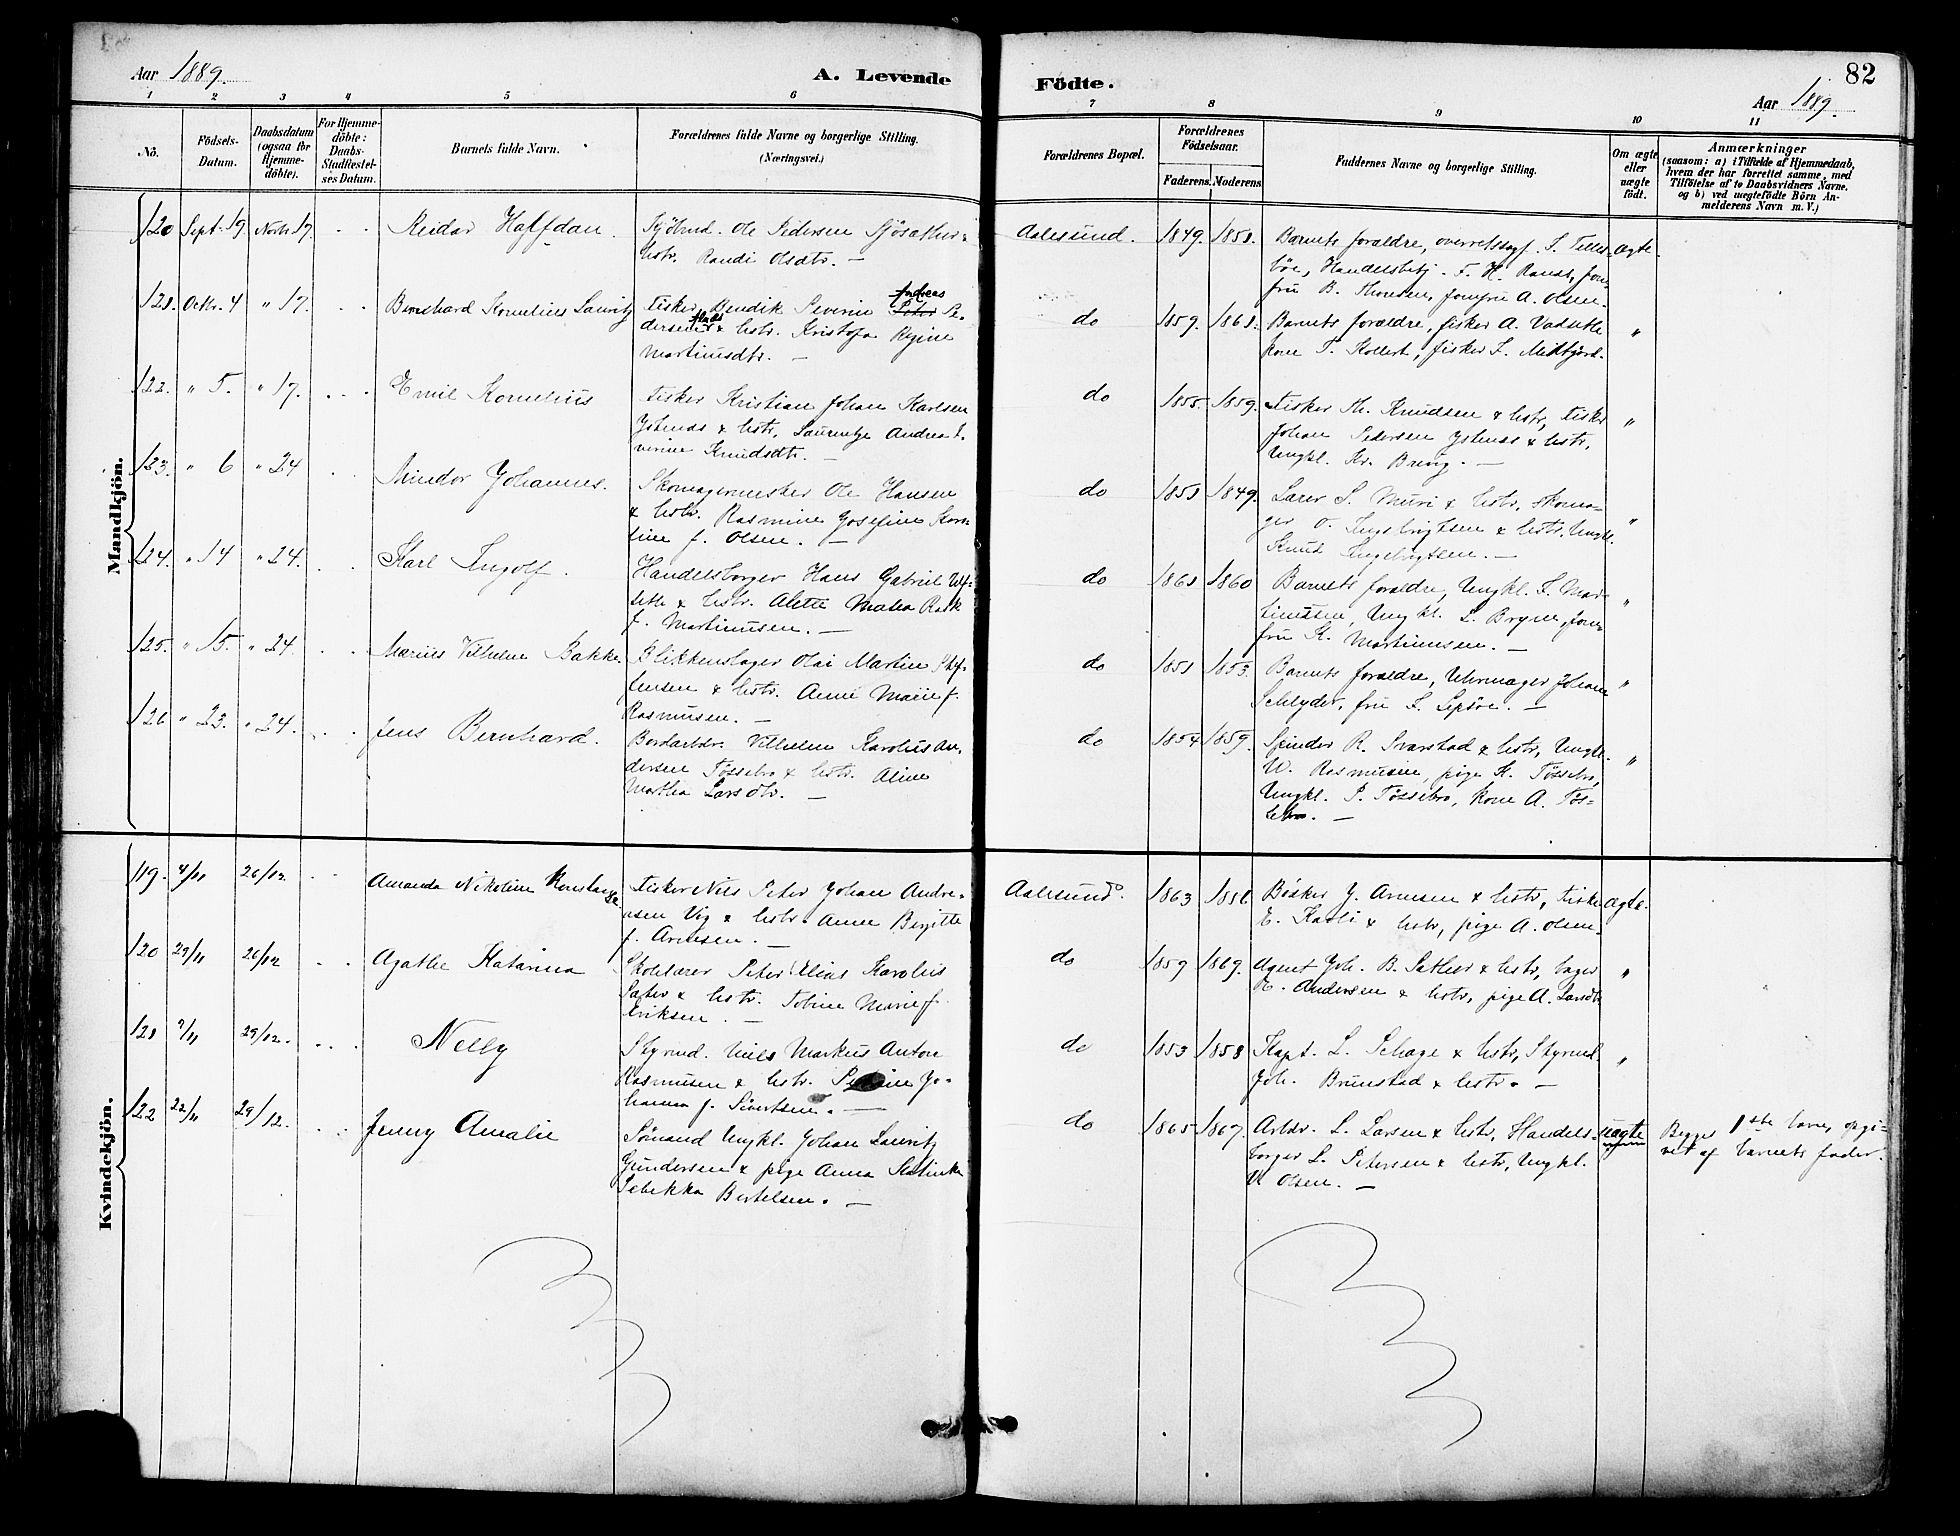 Aar 1889.
A. Levende
Födte.
82
Aar 1889.
1 2 3 4 5 6 7 8 9 10 11
No.
Födsels-
Datum.
Daabsdatum
(ogsaa for
Hjemme-
döbte).
For Hjemme-
döbte:
Daabs-
Stadfæstel-
ses Datum.
Barnets fulde Navn.
Forældrenes fulde Navne og borgerlige Stilling.
(Næringsvei.)
Forældrenes Bopæl.
Forældrenes
Födselsaar.
Faderens. Moderens.
Faddernes Navne og borgerlige Stilling.
Om ægte
eller
uægte
födt.
Anmærkninger
(saasom: a) i Tilfælde af Hjemmedaab,
hvem der har forrettet samme, med
Tilföielse af to Daabsvidners Navne,
og b) ved uægtefödte Börn An-
melderens Navn m. V.)
Mandkjön.
120 Sept. 19. Novbr 17. Reidar Halfdan.
Ole Pedersen
hstr. Randi Olsdtr. —
Aalesund. 1849. 1851.
Barnets forældre, overretssagf. S.
Handelsbetj. T. H. Jom-
fru B. Thomsen, Jomfru A. Olsen.
Ægte.
121. Octbr. 4 " 17. Bernhard Kornelius Lauritz
Fisker Bendik Severin Andreas Peter Pe-
dersen & hstr. Kristofa Regine
Martinusdtr. —
do 1859. 1861.
Barnets forældre, fisker A. Vadseth
kone T. fisker L.
"
122. " 5. " 17. Emil Kornelius
Fisker Kristian Johan Karlsen
Ystenæs & hstr. Laurentze Andrea S.
verine Knudsdtr. —
do 1855. 1859.
Fisker Th. Knudsen & hstr, fisker
Johan Pedersen Ystenæs & hstr.
Ungkl. Kr. —
"
123. " 6 " 24 Mindor Johannes.
Skomagermester Ole Hansen
& hstr. Rasmine Josefine Karo-
line f. Olsen. —
do 1851 1849.
Lærer S. Muri & hstr, skoma-
ger O. Ingebrigtsen & hstr. Ungkl.
Knud Ingebrigtsen. —
"
124. " 14 " 24. Karl Ingolf.
Handelsborger Hans Gabriel Ulf-
seth & hstr. Alette Mathea
f. Martinusen. —
do 1861 1860
Barnets forældre, Ungkl. L. Mar-
tinussen, Ungkl. L. Jom-
fru K. Martinusen. —
"
125. " 15. " 24. Marius Vilhelm Bakke.
Blikkenslager Olai Martin
& hstr. Anne Marie f.
Rasmusen. —
do 1851 1853.
Barnets forældre, Uhrmager Johan
fru L. —
"
126 " 23. " 24. Jens Bernhard.
Vilhelm Karolius An-
dersen Tøssebro & hstr. Aline
Mathea Larsdtr. —
do 1854 1859.
R. Svarstad & hstr, Ungkl.
W. Rasmusen, pige K. Tøssebro,
Ungkl. P. Tøssebro, kone A. Tøs-
sebro. —
"
Kvindekjön.
119. 4/11 26/12 Amanda Nikoline
Fisker Nils Peter Johan Andre-
asen Vig & hstr. Anne Birgitte
f. Arnesen. —
Aalesund. 1863
Bøsker J. Arnesen & hstr, fisker
E. & hstr, pige A. Olsen.
ægte.
120 29/11 26/12 Agathe Katarina
Skolelærer Peter Elias Karolius
Sæter & hstr. Tobine Marie f.
Eriksen. —
do 1859 1869.
Agent Joh. B. Sæther & hstr, bager
E. Andersen & hstr, pige A. Larsdtr
"
121 7/11 29/12. Nelly
Styrmd. Niels Markus Anton
Rasmusen & hstr. Jo-
hanna f. Sivertsen. —
do 1853 1858
Kapt. L. Schage & hstr, Styrmd.
Joh. Brunstad & hstr. —
"
122 22/11 29/12. Jenny Amalie
Sømand Ungkl. Johan Lauritz
Gundersen & pige Anna Katinka
Rebekka Bertelsen. —
do 1865 1867.
Arbdr. L. Larsen & hstr, Handels-
borger L. Petersen & hstr, Ungkl.
Olsen. —
uægte
Begges 1ste barn, opgi-
vet af barnets fader.